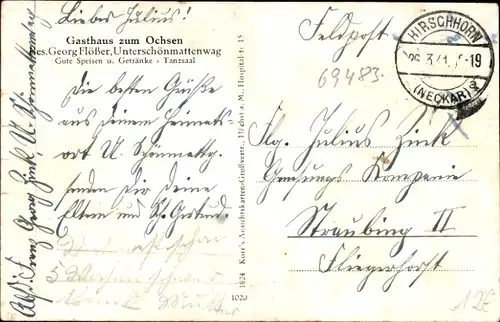 Liebes Julius!
Gasthaus zum Ochsen
Bes. Georg Flößer, Unterschönmattenwag
Gute Speisen u. Getränke - Tanzsaal
Die besten Grüße
aus deinem Heimats-
ort U. Schönmattg.
senden Dir deine
Eltern und Gertrud.
5 Mutter
Georg Zink U. Schönmattenwag
Kurr's Ansichtskarten-Großvertr., Höchst a. M., Hospitalstr. 15
1824
1020
Feldpost
HIRSCHHORN
26.3.41. -19
(NECKAR)
69483
Flg. Julius Zink
Genesungs Kompanie
Straubing II
Fliegerhorst
12€